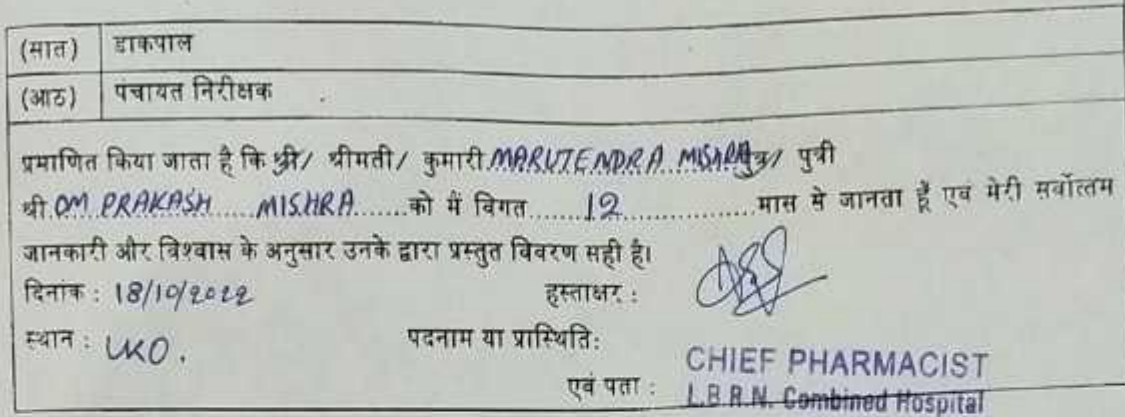 (सात) डाकपाल
(आठ) पंचायत निरीक्षक
प्रमाणित किया जाता है कि श्री/ श्रीमती/ कुमारी MARUTENDRA MISHRA पुत्र/ पुत्री
श्री OM PRAKASH MISHRA को मैं विगत 12 मास से जानता हूँ एवं मेरी सर्वोत्तम
जानकारी और विश्वास के अनुसार उनके द्वारा प्रस्तुत विवरण सही है।
दिनांक : 18/10/2022 हस्ताक्षर :
स्थान : LKO. पदनाम या प्रास्थिति:
CHIEF PHARMACIST
एवं पता : L.B.R.N. Combined Hospital